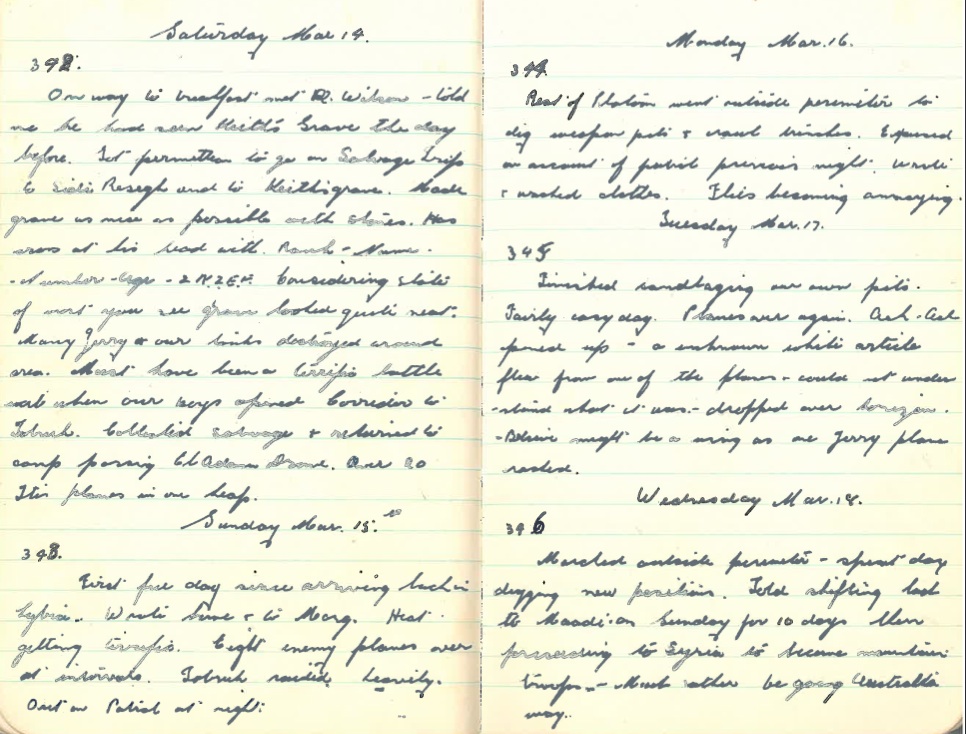 Saturday Mar 14.
392.
On way to breakfast met R. Wilson - told
me he had seen Keith's Grave the day
before. Got permetten to go on Salvage trip
to Sidi Resegh and to Keiths grave. Made
grave as nice as possible with stones. Has
cross at his head with. Rank - Name -
- Number - Age - 2 N.Z.E.F. Considering state
of most you see grave looked quite neat.
Many Jerry & our tanks destroyed around
area. Must have been a terrific battle
when our boys opened Corridor to
Tobruk. Collected salvage & returned to
camp passing El Adam Drome. Over 20
Itis planes in one heap.
Sunday Mar. 15.
393.
First free day since arriving back in
Lybia. Wrote home & to Marg. Heat
getting terrific. Eight enemy planes over
at intervals. Tobruk raided heavily.
Out on Patrol at night.
Monday Mar. 16.
394.
Rest of Platoon went outside perimeter to
dig weapon pits & crawl trenches. Excused
on account of patrol previous night. Wrote
& washed clothes. Flies becoming annoying.
Tuesday Mar. 17.
395
Finished sandbaging our own pits.
Fairly easy day. Planes over again. Ack-Ack
opened up - a unknown white article
flew from one of the planes - could not under
-stand what it was - dropped over horizon.
- Believe might be a wing as one Jerry plane
crashed.
Wednesday Mar. 18.
396
Marched outside perimeter - spent day
digging new position. Told shifting back
to Maadi on Sunday for 10 days then
proceeding to Syria to become mountain
troops - Much rather be going Australia
way.